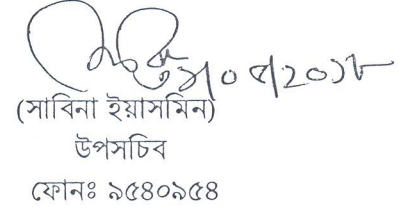 (সাবিনা ইয়াসমিন)
উপসচিব
ফোনঃ ৯৫৪০৯৫৪